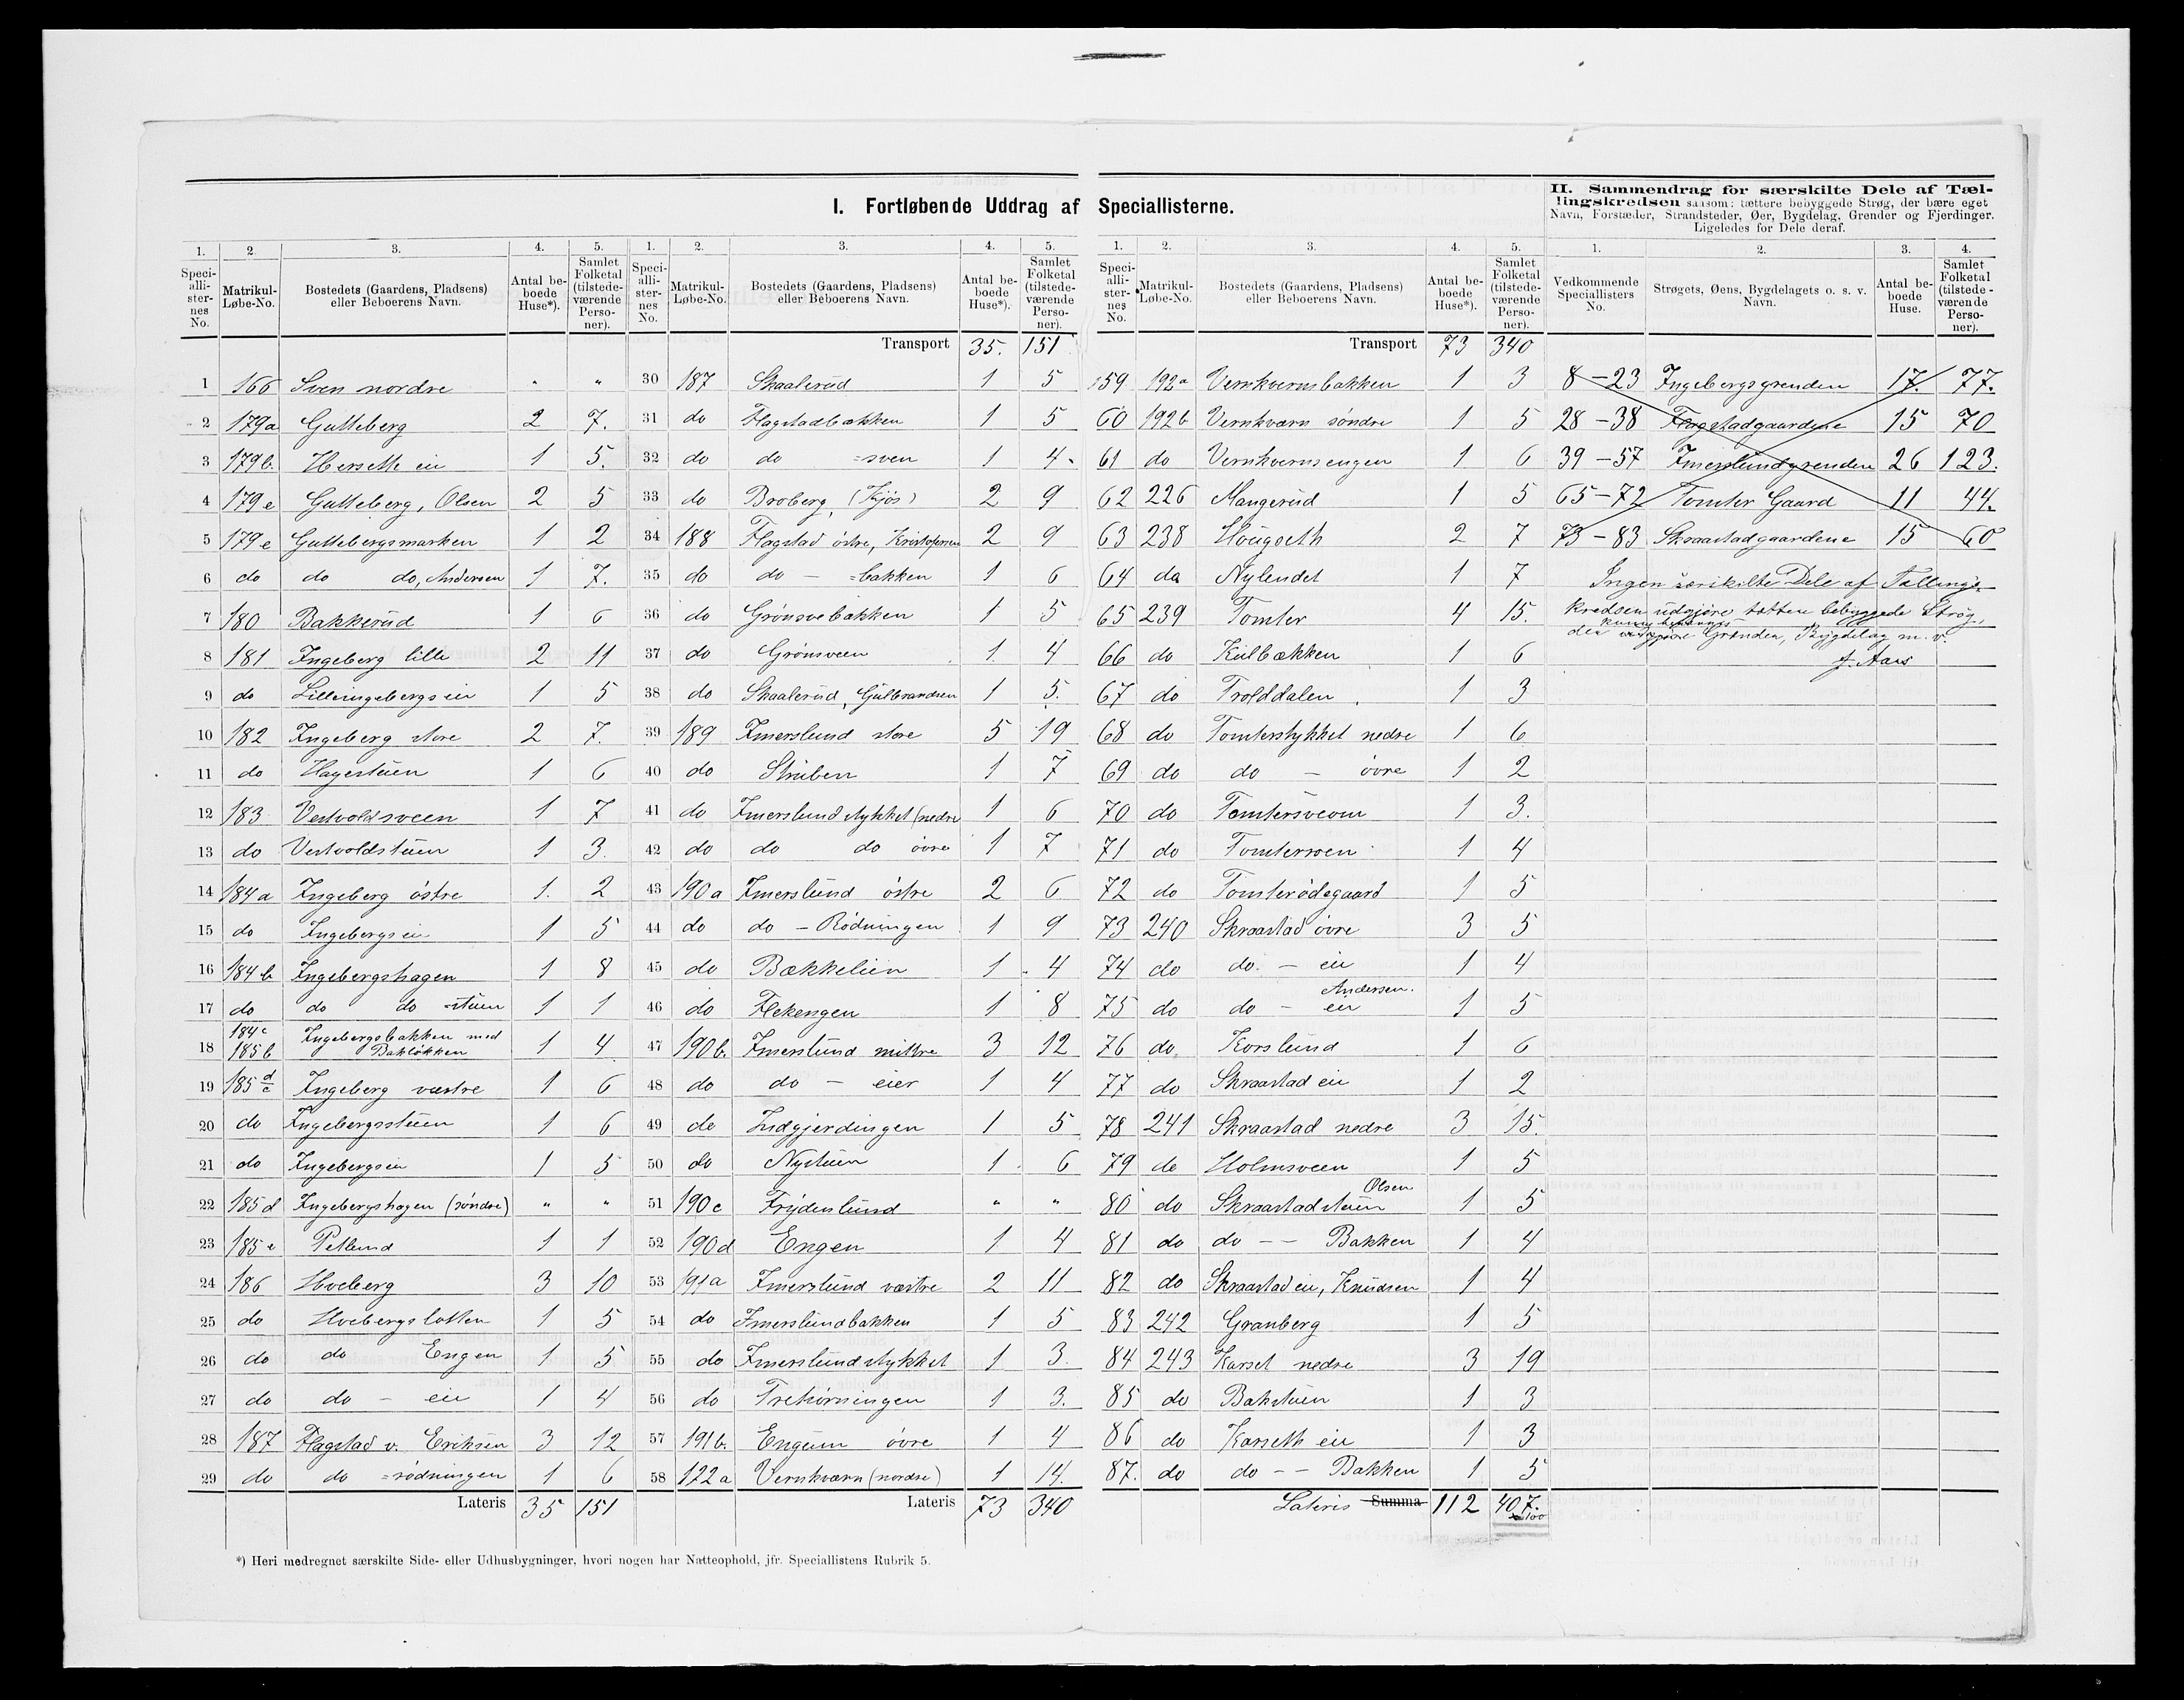 I. Fortløbende Uddrag af Speciallisterne.
II. Sammendrag for særskilte Dele af Tæl-
lingskredsen saasom: tættere bebyggede Strøg, der bære eget
Navn, Forstæder, Strandsteder, Øer, Bygdelag, Grender og Fjerdinger.
Ligeledes for Dele deraf.
1. Speci-alli-ster-nes No. 2. Matrikul-Løbe-No. 3. Bostedets (Gaardens, Pladsens) eller Beboerens Navn. 4. Antal be-boede Huse*). 5. Samlet Folketal (tilstede-værende Perso-ner).
1 166 Sven nordre " "
2 179a Gutteberg 2 7.
3 179b. Hersette eie 1 5.
4 179e Gutteberg, Olsen 2 5
5 179e Guttebergsmarken 1 2
6 do do do, Andersen 1 7.
7 180 Bakkerud 1 6
8 181 Ingeberg lille 2 11
9 do Lilleingebergs eie 1 5
10 182 Ingeberg store 2 7.
11 do Hagestuen 1 6
12 183 Vestvoldsveen 1 7
13 do Vestvoldstuen 1 3.
14 184a Ingeberg östre 1. 2
15 do Ingebergs eie 1 5
16 184b Ingebergshagen 1 8
17 do do do =stuen 1 1
18 184c 185b Ingebergsbakken med Bakløkken 1 4
19 185 d/c Ingeberg væstre 1 6
20 do Ingebergsstuen 1 6
21 do Ingebergseie 1 5
22 185d Ingebergshagen (söndre) " "
23 185e Petlund 1 1
24 186 Hveberg 3 10
25 do Hvebergslotten 1 5
26 do do Engen 1 5
27 do do - eie 1 4
28 187 Flagstad v. Eriksen 3 12
29 do do =rødningen 1 6
Lateris 35 151
1. Speci-alli-ster-nes No. 2. Matrikul-Løbe-No. 3. Bostedets (Gaardens, Pladsens) eller Beboerens Navn. 4. Antal be-boede Huse*). 5. Samlet Folketal (tilstede-værende Perso-ner).
Transport 35. 151
30 187 Skaalerud 1 5
31 do Flagstadbakken 1 5
32 do do =sven 1 4
33 do Broberg, (Kjös) 2 9
34 188 Flagstad östre, Kristofersen 2 9
35 do do - =bakken 1 6
36 do Grönsvebakken 1 5
37 do Grönsveen 1 4
38 do Skaalerud, Gulbrandsen 1 5.
39 189 Imerslund store 5 19
40 do Stuben 1 7
41 do Imerslundstykket (nedre 1 6
42 do do do övre 1 7
43 190a Imerslund östre 2 6
44 do do - Rödningen 1 9
45 do Bækkelien 1 4
46 do Flekengen 1 8
47 190b. Imerslund mittre 3 12
48 do do - eier 1 4
49 do Indgjerdingen 1 5
50 do Nystuen 1 6
51 190c Frydenlund " "
52 190d Engen 1 4
53 191a Imerslund væstre 2 11
54 do Imerslundbakken 1 5
55 do Imerslundstykket 1 3.
56 do Trekörningen 1 3.
57 191b. Engum övre 1 4
58 122a Vernkværn (nordre) 1 14.
Lateris 73 340
1. Speci-alli-ster-nes No. 2. Matrikul-Løbe-No. 3. Bostedets (Gaardens, Pladsens) eller Beboerens Navn. 4. Antal be-boede Huse*). 5. Samlet Folketal (tilstede-værende Perso-ner).
Transport 73 340
59 192a Vernkvernsbakken 1 3
60 192b Vernkværn söndre 1 5
61 do Vernkvernsengen 1 6
62 226 Mangerud 1 5
63 238 Hougseth 2 7
64 da Nylendet 1 7
65 239 Tomter 4 15.
66 do Kulbækken 1 6
67 do Trolddalen 1 3
68 do Tomterstykket nedre 1 6
69 do do - övre 1 2
70 do Tomtersveom 1 3.
71 do Tomterroen 1 4
72 do Tomterödegaard 1 5
73 240 Skraastad övre 3 5
74 do do. - eie 1 4
75 do do - eie Andersen. 1 5
76 do Korslund 1 6
77 do Skraastad eie 1 2
78 241 Skraastad nedre 3 15.
79 do Holmsveen 1 5
80 do Skraastadstuen Olsen 1 5
81 do do -- Bakken 1 4
82 do Skraastad eie, Knudsen 1 4
83 242 Granberg 1 5
84 243 Karset nedre 3 19
85 do Bakstuen 1 3
86 do Karseth eie 1 3
87. do do -- Bakken 1 5
Lateris Summa 112 407.
1. Vedkommende Speciallisters No. 2. Strøgets, Øens, Bygdelagets o. s. v. Navn. 3. Antal be-boede Huse. 4. Samlet Folketal (tilstede-værende Perso-ner).
8-23 Ingebergsgrenden 17. 77.
28-38 Flagstadgaardene 15 70
39-57 Imerslundgrenden 26 123.
65-72 Tomter Gaard 11 44.
73-83 Skraastadgaardene 15 60
Ingen særskilte Dele af Tællings-
kredsen udgjøre tættere bebyggede Strøg,
der kunne benævnes Grender, Bygdelag m. v.
J. Aars
*) Heri medregnet særskilte Side- eller Udhusbygninger, hvori nogen har Natteophold, jfr. Speciallistens Rubrik 5.